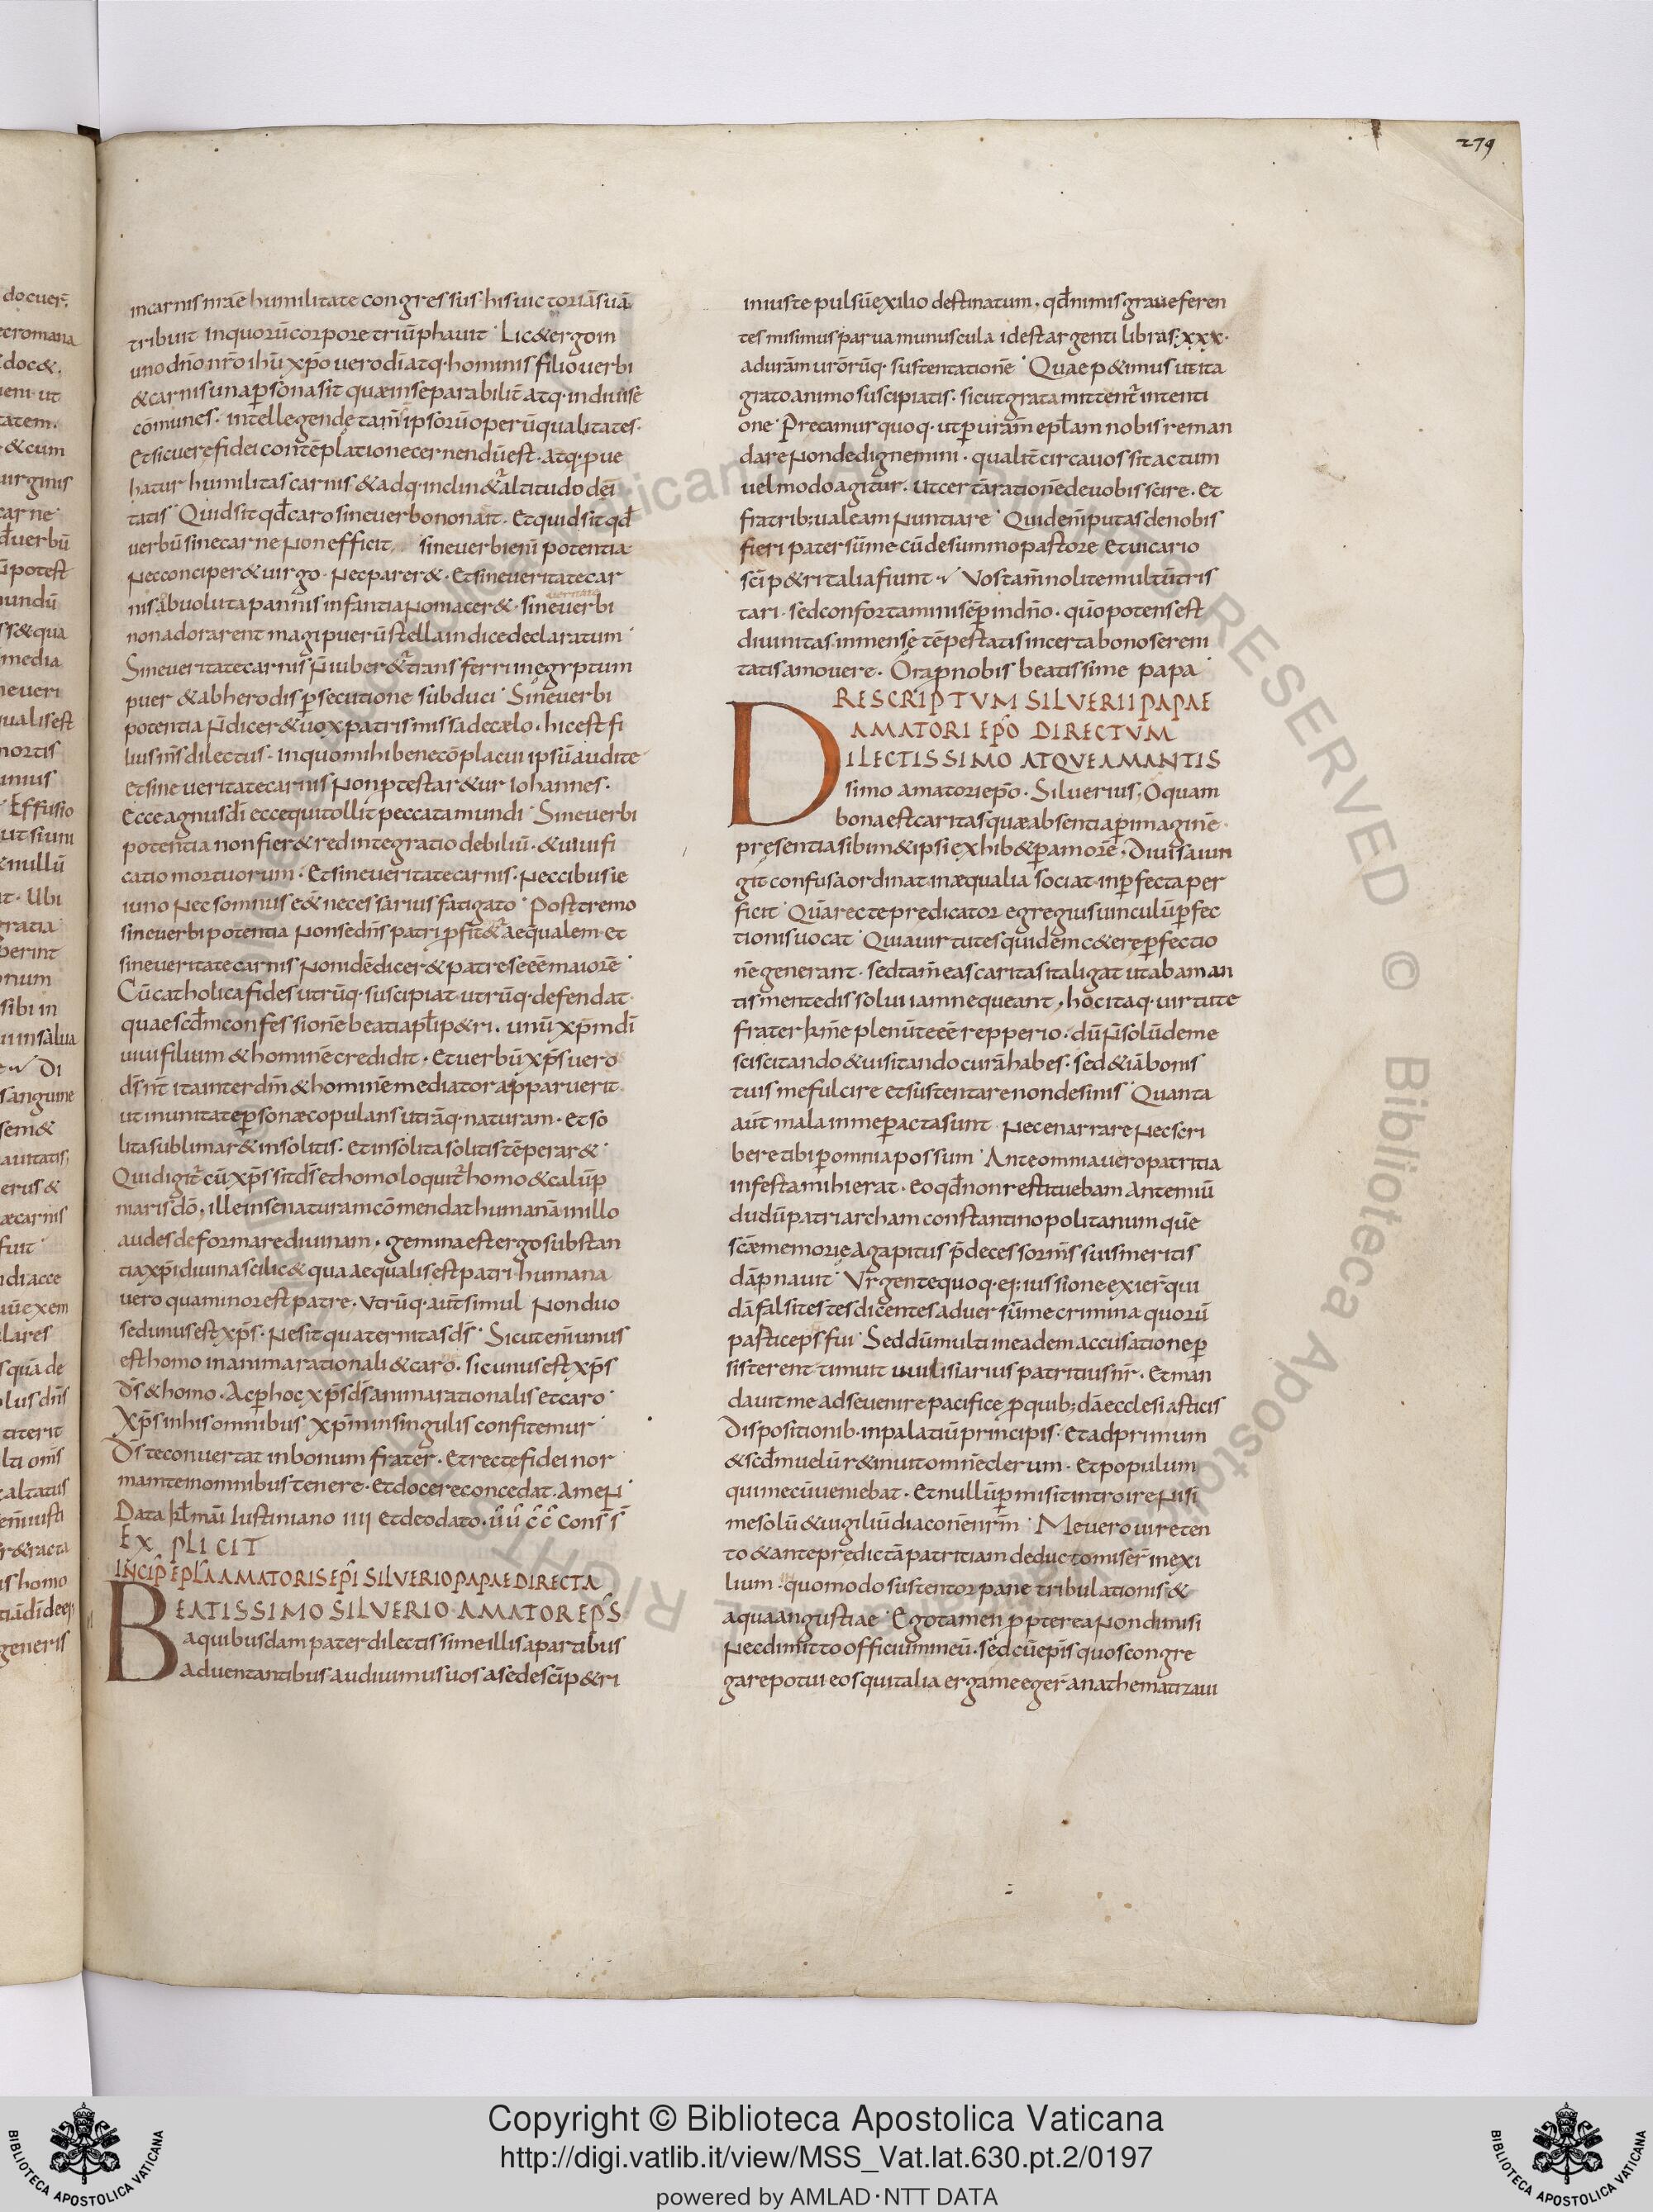 279
incarnis nr̄ae humilitate congressus. his uictoriā suā
tribuit inquorū corpore triūphauit. Lic& ergo in
uno dn̄o nr̄o ihū xp̄o uero dī atq. hominis filio uerbi
& carnis una persona sit quae inseparabilit̄ atq. indiuise
cōmunes. intellegende tam̄ ipsorū operū qualitates.
Et sic uere fidei contēplatione cernendū est. atq. proue
hatur humilitas carnis & adq. inclin&ur altitudo dei
tatis. Quid sit qd̄ caro sine uerbo non ait. Et quid sit qd̄
uerbū sine carne non efficit, sine uerbi enī potentia
nec conciper& uirgo. nec parer&. Et sine ueritate car
nis abuoluta pannis infantia non iacer&. sine uerbi
non adorarent magi puerū stella indice declaratum.
Sine ueritate carnis n̄ iuber&ur transferri in egyptum
puer & ab herodis psecutione subduci. Sine uerbi
potentia n̄ dicer& uox patris missa de caelo. hic est fi
lius m̄s dilectus. inquo mihi bene cōplacui ipsū audite
et sine ueritate carnis non ptestar&ur Iohannes.
Ecce agnus dī ecce qui tollit peccata mundi. Sine uerbi
potentia non fier& redintegratio debiliū. & uiuifi
catio mortuorum. Et sine ueritate carnis. nec cibus ie
iuno nec somnus e&  necessarius fatigato. Posttremo
sine uerbi potentia non se dn̄s patri pfit&ur aequalem. et
sine ueritate carnis non idē dicer& patre se eē maiorē.
Cū catholica fides utrūq. suscipiat utrūq. defendat.
quae scd̄m confessionē beati apl̄i p&ri. unū xp̄m dī
uiui filium & hominē credidit. Et uerbū xp̄s uero
ut in unitate personae copulans utrāq. naturam. et so
lita sublimar& insolitis. et insolita solitis tēperar&.
Quid igit̄ cū xp̄s sit ds̄ et homo loquit̄ homo & calūp
maris dō, ille in se naturam cōmendat humanā in illo
audes deformare diuinam. gemina est ergo substan
tia xp̄i diuina scilic& qua aequalis est patri humana
uero qua minor est patre. Vtrūq. aut̄ simul non duo
sed unus est xp̄s. ne sit quaternitas ds̄. Sicut enī unus
est homo in anima rationali & caro. sic unus est xp̄s
Ds̄ & homo. Ac per hoc xp̄s ds̄ anima rationalis et caro.
Xp̄s in his omnibus xp̄m in singulis confitemur.
Ds̄ te conuertat in bonum frater. Et recte fidei nor
mam te in omnibus tenere. et docere concedat. amen.
Data kl̄ māī Iustiniano IIII et deodato. ūū c̄c̄ cons̄s̄
EX PLICIT
INCIP EPLA AMATORIS EPI SILVERIO PAPAE DIRECTA
BEATISSIMO SILVERIO AMATOR EPS
a quibusdam pater dilectissime illis a partibus
aduentantibus audiuimus uos a sede scī p&ri
iniuste pulsū exilio destinatum. qd̄ nimis graue feren
tes misimus parua munuscula id est argenti libras. xxx.
ad urām urōrūq. sustentationē. Quae p&imus ut ita
grato animo suscipiatis. sicut grata mittent̄ intenti
one. Precamur quoq. ut p uiram̄ epl̄am nobis reman
dare non dedignemini. qualit̄ circa uos sit actum
uel modo agitur. ut certā rationē de uobis scire. Et
fratrib; ualeam nuntiare. Quid enī putas de nobis
fieri pater sūme cū de summo pastore et uicario
scī p&ri talia fiunt. Vos tam̄ nolite multū tris
tari. sed confortamini sēp in dn̄o. quo potens est
diuinitas immense tēpestatis incerta bono sereni
tatis amouere. Ora p nobis beatissime papa.
RESCRIPTVM SILVERII PAPAE
AMATORI EPO DIRECTVM
DILECTISSIMO ATQVE AMANTIS
simo amatori ep̄o. Siluerius, O quam
bona est caritas quae absentia p imaginē.
presentia sibim& ipsi exhib& p amorē. Diuisa iun
git confusa ordinat inaequalia sociat inperfecta per
ficit. Quā recte predicator egregius uinculū perfec
tionis uocat. Quia uirtutes quidem c&ere perfectio
nē generant. sed tam̄ eas caritas ita ligat ut ab aman
tis mente dissolui iam nequeant, hoc itaq. uirtute
frater km̄e plenū te eē repperio. dū n̄ solū de me
sciscitando & uisitando curā habes. sed & iā bonis
tuis me fulcire et sustentare non desinis. Quanta
aut̄ mala in me peracta sunt nec enarrare nec scri
bere tibi p omnia possum. Ante omnia uero patritia
infesta mihi erat. eo qd̄ non restituebam antemiū
dudū patriarcham constantinopolitanum quē
scāe memorie agapitus p̄decessor m̄s suis meritis
dāpnauit. Vrgente quoq. ei; iussione exier̄ qui
dā falsi testes dicentes aduersū me crimina quorū
particeps fui. Sed dū multi in eadem accusatione per
sisterent timuit uuilisiarius patritius nr̄. Et man
dauit me ad se uenire pacifice p quib; dā ecclesiasticis
dispositionib. in palatiū principis. Et ad primum
& scd̄m uelū r&inuit omnē clerum. et populum
qui mecū ueniebat. Et nullū pmisit introire nisi
me solū & uigiliū diaconē nrm̄. Me uero ui reten
to & ante predictā patritiam deducto miser̄ in exi
lium. quo modo sustentor pane tribulationis &
aqua angustiae. Ego tamen p pterea non dimisi
nec dimitto officium meū. sed cū ep̄is quos congre
gare potui eos qui talia erga me eger̄ anathematizaui
Copyright © Biblioteca Apostolica Vaticana
http://digi.vatlib.it/view/MSS_Vat.lat.630.pt.2/0197
powered by AMLAD·NTT DATA
BIBLIOTECA APOSTOLICA VATICANA
BIBLIOTECA APOSTOLICA VATICANA